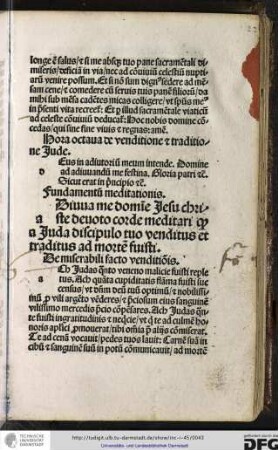 longe ē salus/ et si me absqz tuo pane sacramētali di-
miseris/ deficiā in via/ nec ad cōuiuiū celestiū nuptia-
rū venire possum. Et si nō sum dignꝰ sedere ad mē-
sam cene/ et comedere cū seruis tuis panē filiorū/ da
mihi sub mēsa cadētes micas colligere/ vt spūs meꝰ
in pn̄senti vita recreet: Et p illud sacramētale viaticū
ad celeste cōuiuiū deducat: Hoc nobis domine cō-
cedas/ qui sine fine viuis et regnas: amē.
Hora octaua de venditione et traditio-
ne Jude.
Eus in adiutoriū meum intende. Domine
d
ad adiuuandū me festina. Gloria patri zc̄.
Sicut erat in pncipio zc̄.
Fundamentū meditationis.
Diuua me domīe Jesu chri-
a
ste deuoto corde meditari qp
a Juda discipulo tuo venditus et
traditus ad mortē fuisti.
De miserabili facto venditiōis.
Ch Judas qnto veneno malicie fuisti reple
a
tus. Ach quāta cupiditatis flāma fuisti suc
census/ vt dnm deū tuū optimū/ z nobilissi-
mū p vili argēto vēderes/ et pciosum eius sanguinē
vilissimo mercedis pcio cōpēsares. Ach Judas qn-
te fuisti ingratitudinis z neqcie/ vt q te ad culmē ho-
noris aplici pmouerat/ tibi oīa p alijs cōmiserat.
Te ad cenā vocauit/ pedes tuos lauit: Carnē suā in
cibū z sanguinē suū in potū cōmunicauit/ ad mortē
http://tudigit.ulb.tu-darmstadt.de/show/inc-i-45/0043
Universitäts- und Landesbibliothek Darmstadt
TECHNISCHE
UNIVERSITÄT
DARMSTADT
gefördert durch die
DFG